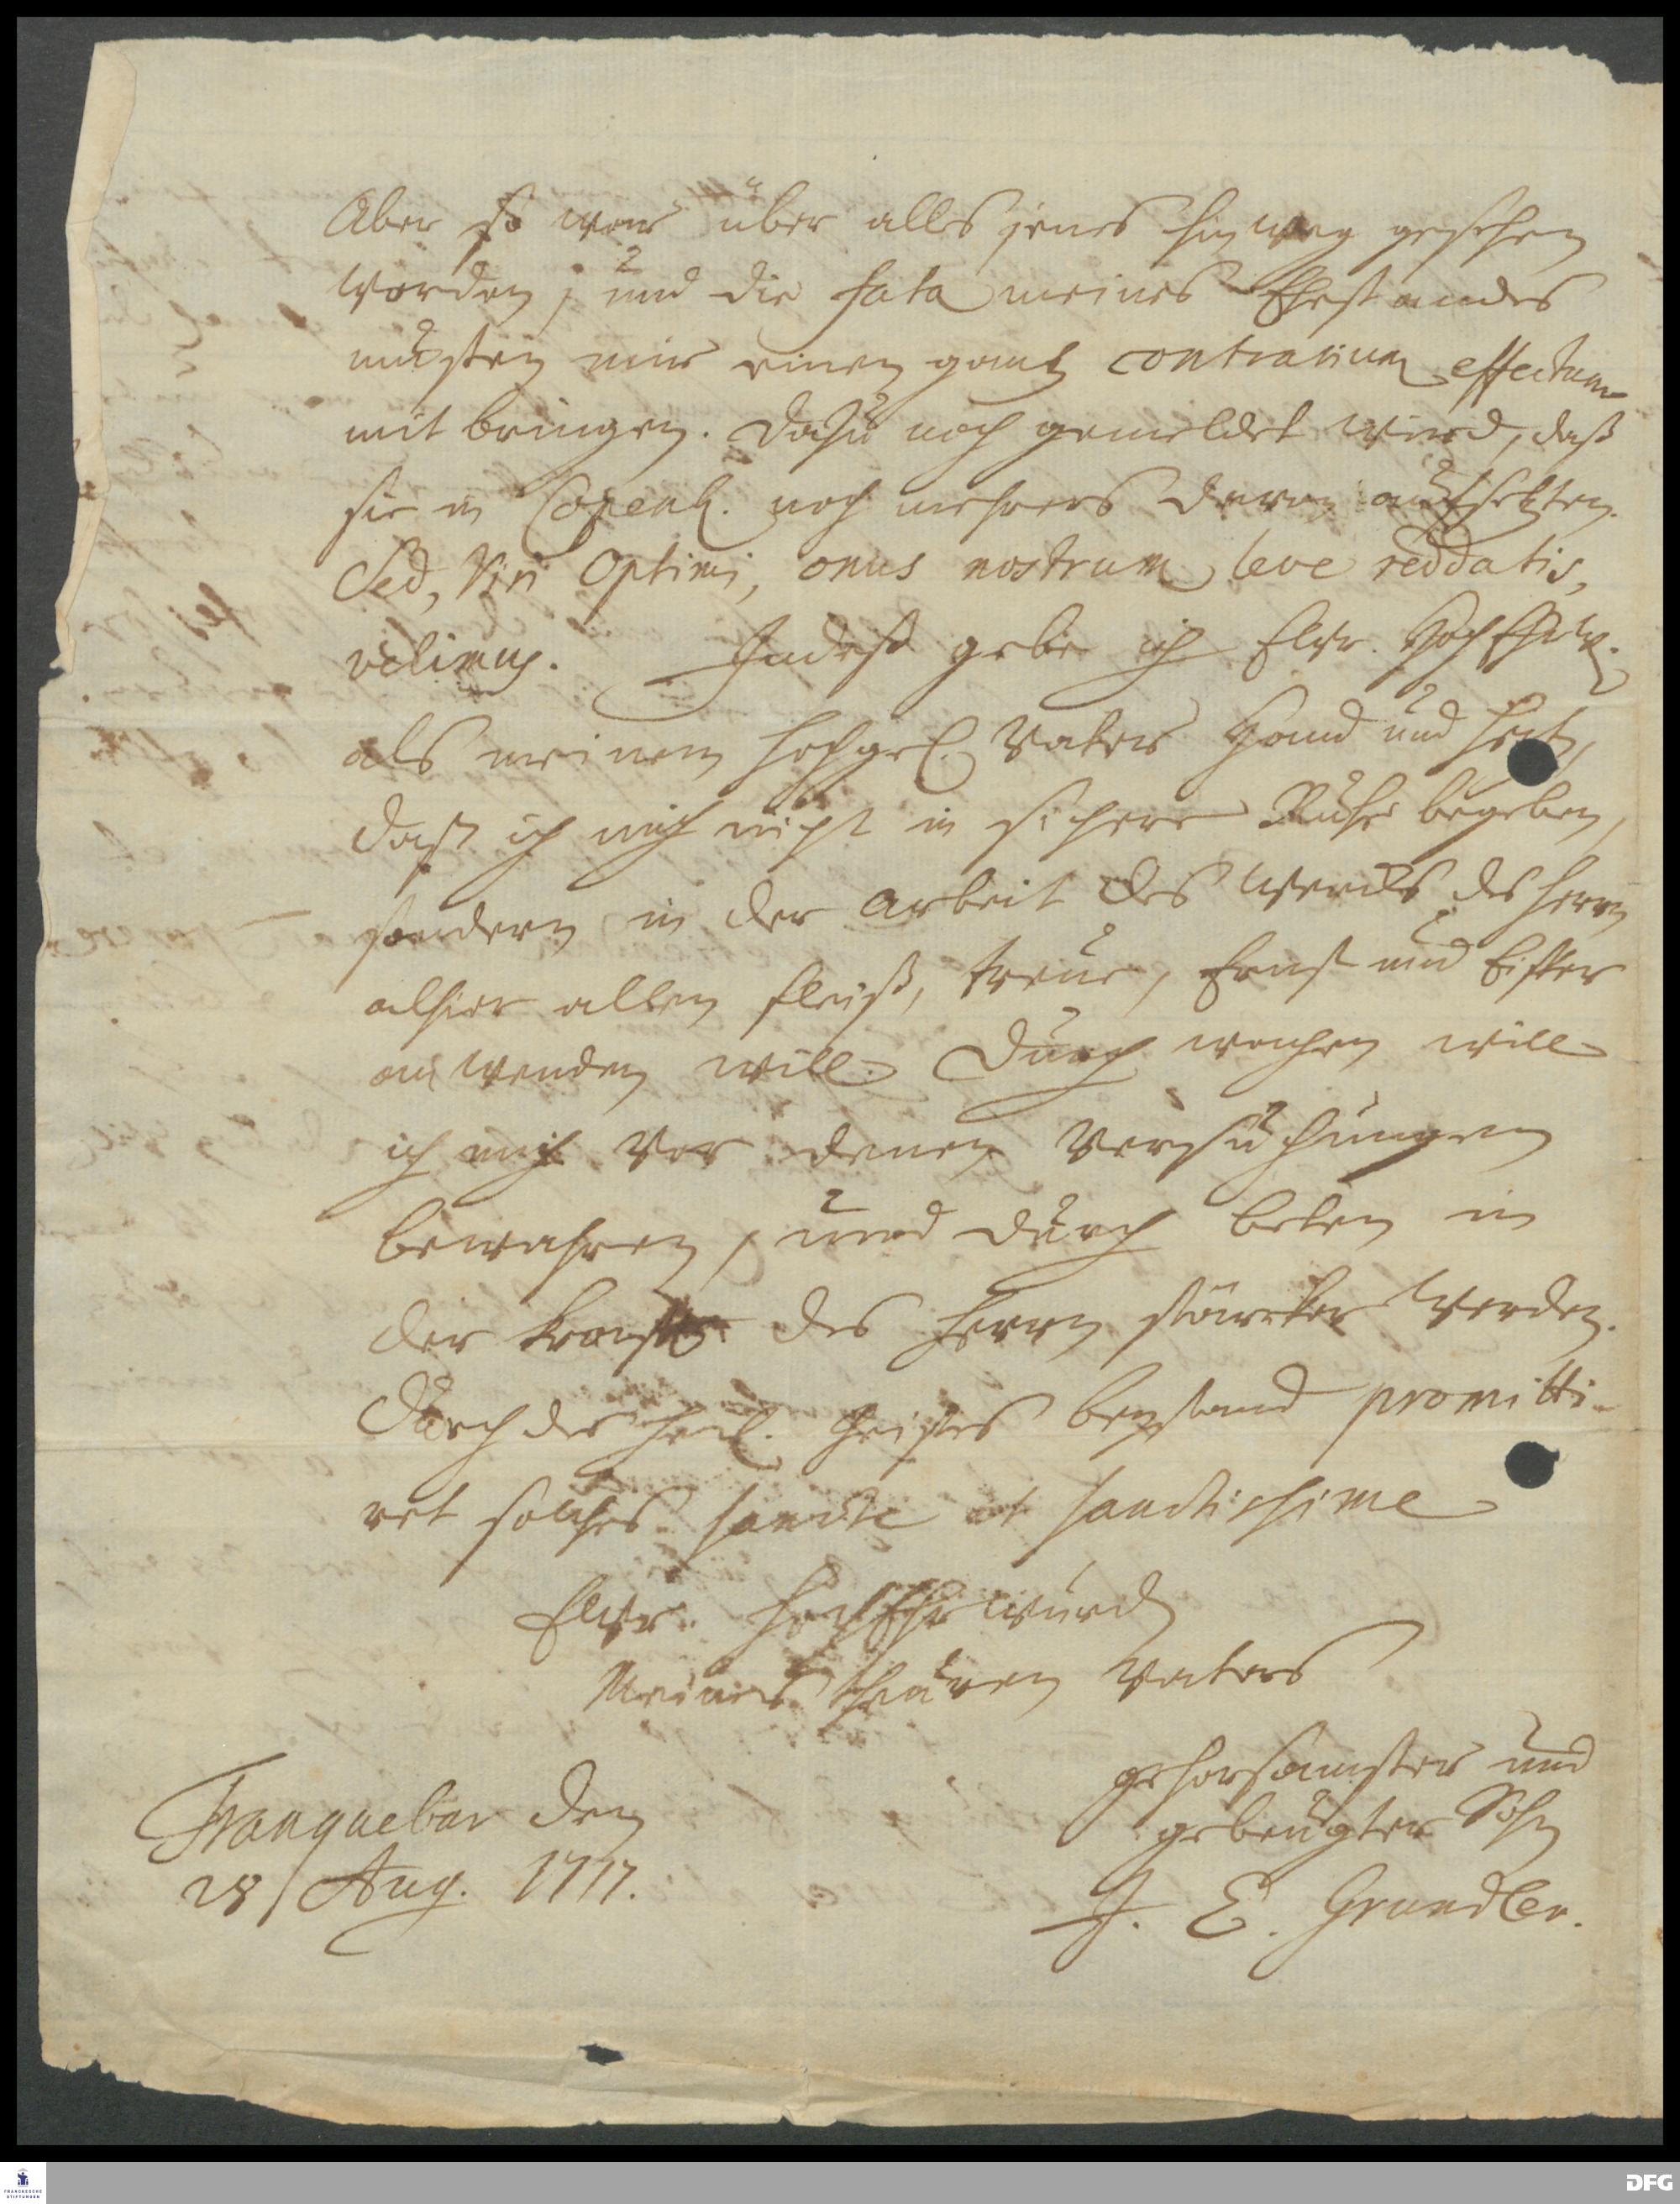 Aber so war über alles jenes hinweg gesehen
worden, und die fata meines Ehestandes
musten mir einen gantz contrarium effectum
mit bringen. Dazu noch gemeldet wird, daß
sie in Copenh. noch mehrers davon aufsetzten.
Sed, Viri Optimi, onus nostrum leve reddatis,
velimus. Indeß gebe ich Ewr. HochEhrw.
als meinem hochgel. Vater Hand und Hertz,
daß ich mich nicht in sichere Ruhe begeben,
sondern in der Arbeit des Wercks des Herrn
alhier allen fleiß, treue, Ernst und Eiffer
anwenden will. Durch wachen will
ich mich vor denen Versuchungen
bewahren, und durch beten in
der Krafft des Herrn stärcker werden.
Durch des heil. Geistes beystand promitti-
ret solches sancte et sanctissime
Ewr. HochEhrwürd
Meines theuren Vaters
gehorsamster und
gebeugter Sohn
J. E. Grundler.
Tranquebar den
28 Aug. 1717.
FRANCKESCHE
STIFTUNGEN
DFG